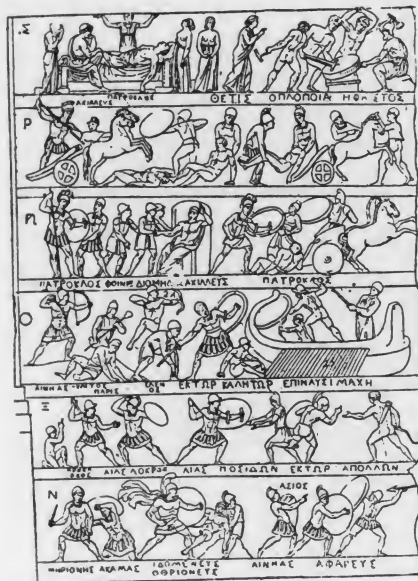 Σ
ΠΑΤΡΟΚΛΟΣ
ΑΧΙΛΛΕΥΣ
ΘΕΤΙΣ ΟΠΛΟΠΟΙΑ ΗΦΑΙΣΤΟΣ
Ρ
Π
ΠΑΤΡΟΚΛΟΣ ΦΟΙΝΙΞ ΔΙΟΜΗΔ ΑΧΙΛΛΕΥΣ ΠΑΤΡΟΚΛΟΣ
Ο
ΑΙΝΗΑΣ
ΠΑΡΙΣ
ΕΚΤΩΡ ΚΑΛΗΤΩΡ ΕΠΙΝΑΥΣΙΜΑΧΗ
Ξ
ΑΙΑΣ ΛΟΚΡΟΣ ΑΙΑΣ ΠΟΣΙΔΩΝ ΕΚΤΩΡ ΑΠΟΛΛΩΝ
Ν
ΑΣΙΟΣ
ΜΗΡΙΟΝΗΣ ΑΚΑΜΑΣ ΙΔΟΜΕΝΕΥΣ
ΟΘΡΙΟΝΕΥΣ
ΑΙΝΗΑΣ ΑΦΑΡΕΥΣ